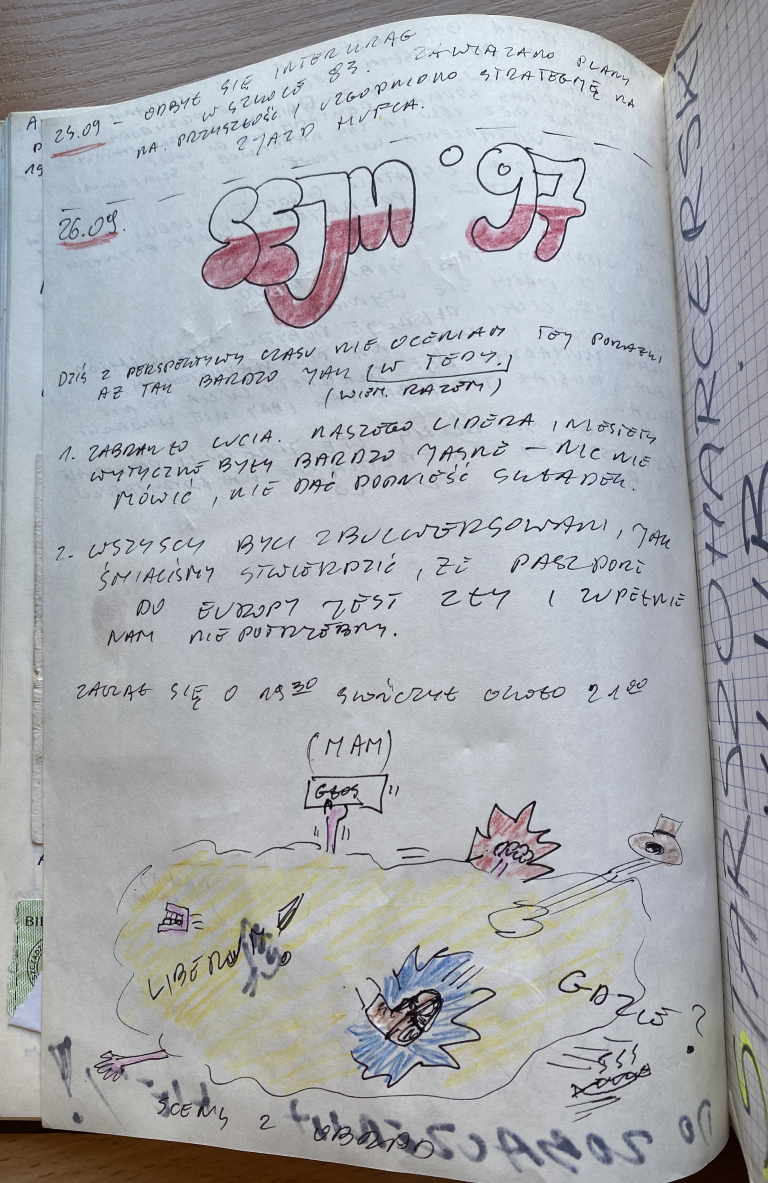 25.09 – ODBYŁ SIĘ INTERKRĄG
W SZKOLE 83. ZAWIĄZANO PLANY
NA PRZYSZŁOŚĆ I UZGODNIONO STRATEGIĘ NA
ZJAZD HUFCA.
26.09. SEJM '97
DZIŚ Z PERSPEKTYWY CZASU NIE OCENIAM TEJ PORAŻKI
AŻ TAK BARDZO JAK (W TEDY.)
(WIEM. RAZEM)
1. ZABRAKŁO LUCIA. NASZEGO LIDERA, NIESTETY
WYTYCZNE BYŁY BARDZO JASNE – NIC NIE
MÓWIĆ, NIE DAĆ PODNIEŚĆ SKŁADEK.
2. WSZYSCY BYLI ZBULWERSOWANI, JAK
ŚMIALIŚMY STWIERDZIĆ, ŻE PASZPORT
DO EUROPY JEST ZŁY I ZUPEŁNIE
NAM NIEPOTRZEBNY.
ZACZĄŁ SIĘ O 19 30 SKOŃCZYŁ OKOŁO 21 00
(MAM)
GŁOS
LIBERUM
GDZIE?
SCENY Z OBRAD
STARSZOHARCERSKI
BI